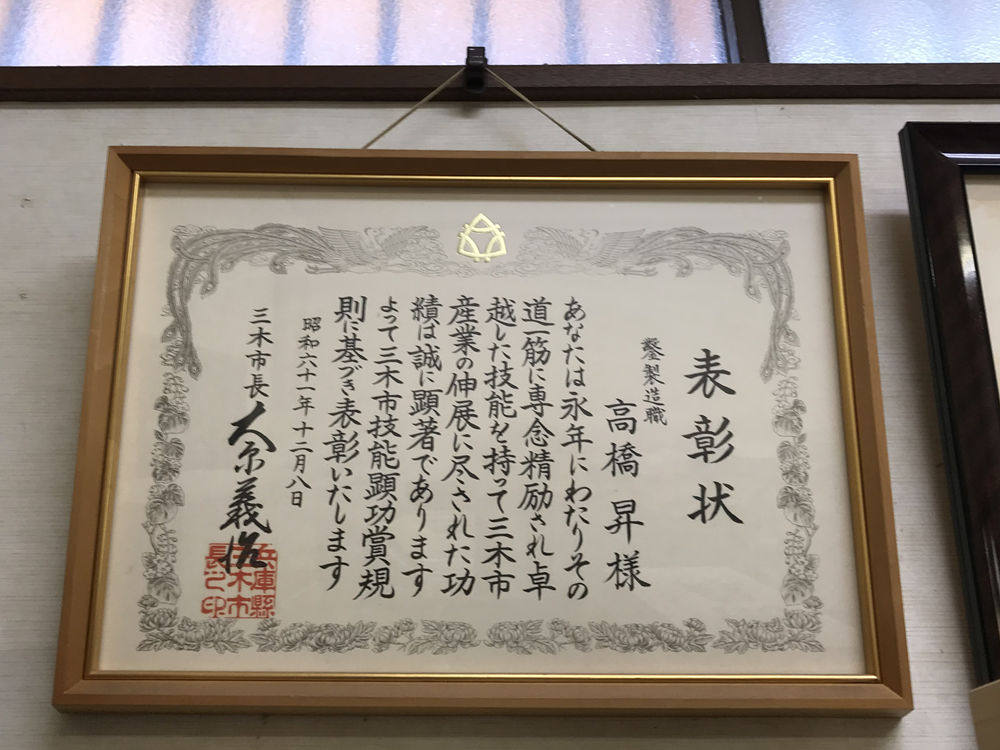 表彰状
鑿製造職
高橋昇様
あなたは永年にわたりその
道一筋に専念精励され卓
越した技能を持って三木市
産業の伸展に尽された功
績は誠に顕著であります
よって三木市技能顕功賞規
則に基づき表彰いたします
昭和六十一年十二月八日
三木市長
兵庫縣
三木市
長之印